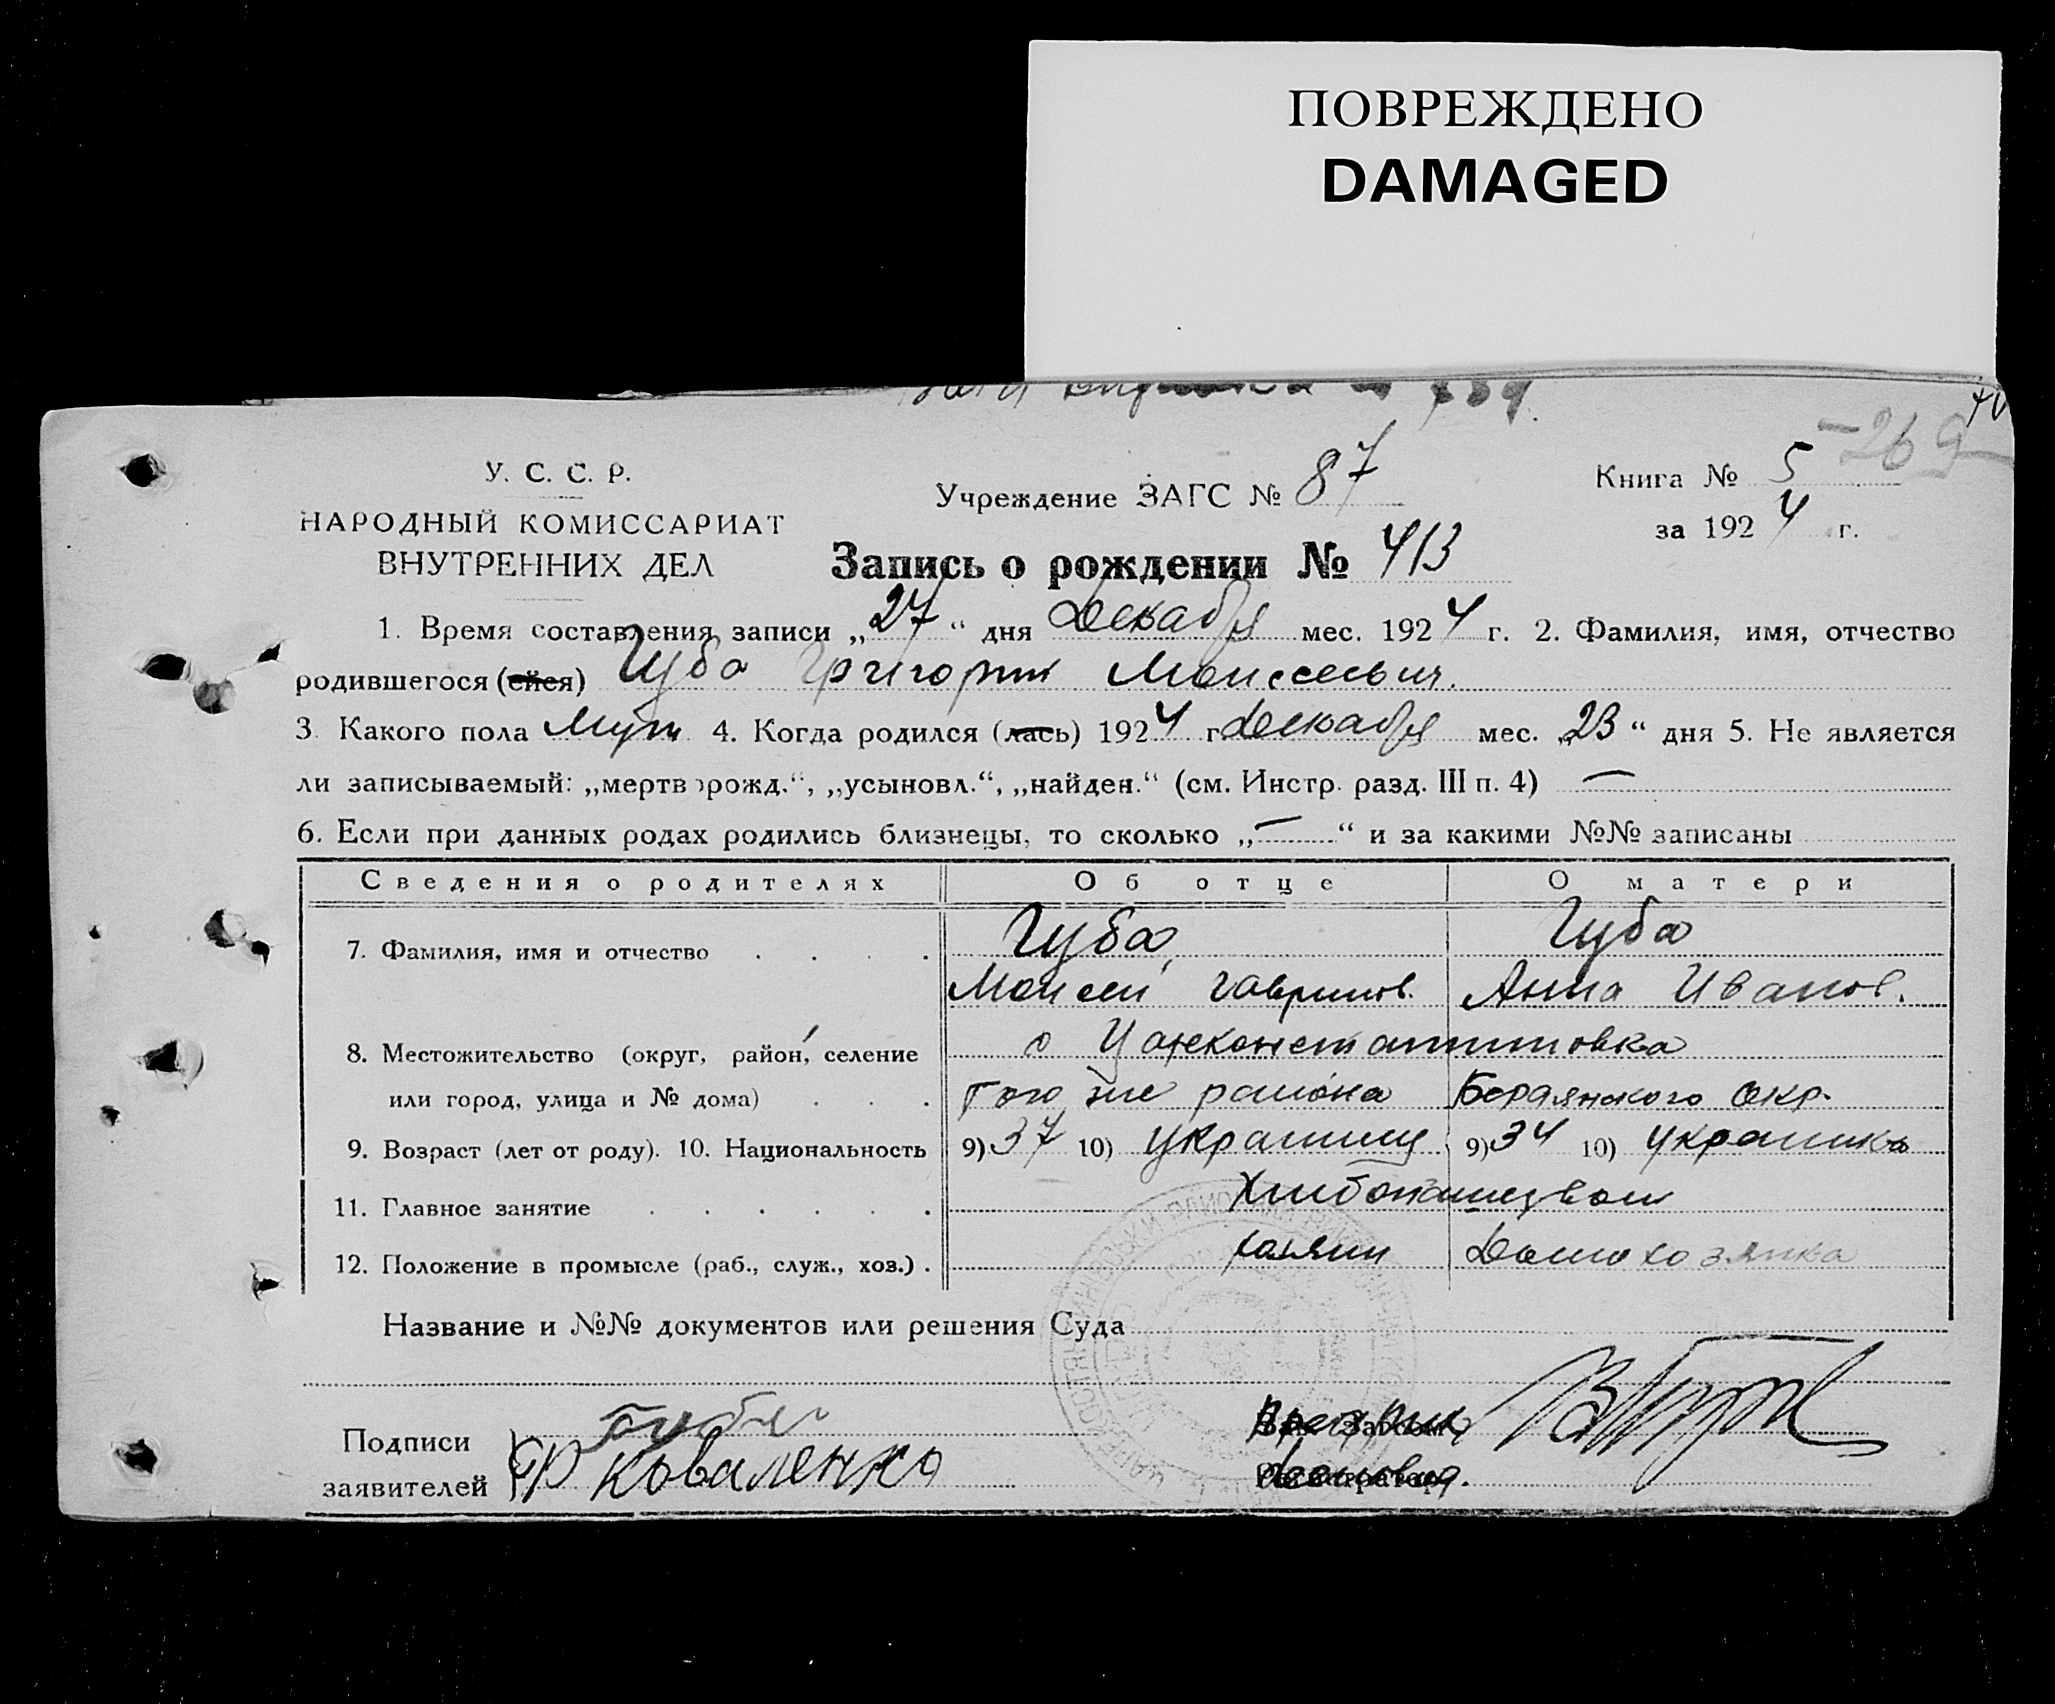 ПОВРЕЖДЕНО
DAMAGED
269
У. С. С. Р.
НАРОДНЫЙ КОМИССАРИАТ
ВНУТРЕННИХ ДЕЛ
Учреждение ЗАГС № 87
Книга № 5
за 1924 г.
Запись о рождении № 413
1. Время составления записи „27“ дня Декабря мес. 1924 г. 2. Фамилия, имя, отчество
родившегося (ейся) Губа Григорий Моисеевич.
3. Какого пола Муж 4. Когда родился (лась) 1924 г Декабря мес. „23“ дня 5. Не является
ли записываемый: „мертворожд.“, „усыновл.“, „найден.“ (см. Инстр. разд. III п. 4) —
6. Если при данных родах родились близнецы, то сколько „—“ и за какими №№ записаны
Сведения о родителях Об отце О матери
7. Фамилия, имя и отчество Губа Губа
Моисей Гаврилов. Анна Иванов.
8. Местожительство (округ, район, селение с Цареконстантиновка
или город, улица и № дома) того же района Бердянского Окр.
9. Возраст (лет от роду). 10. Национальность 9) 37 10) украинец 9) 34 10) украинка
11. Главное занятие Хлибопашеством
12. Положение в промысле (раб., служ., хоз.) хозяин Домохозяика
Название и №№ документов или решения Суда
Подписи Губа
заявителей Коваленко